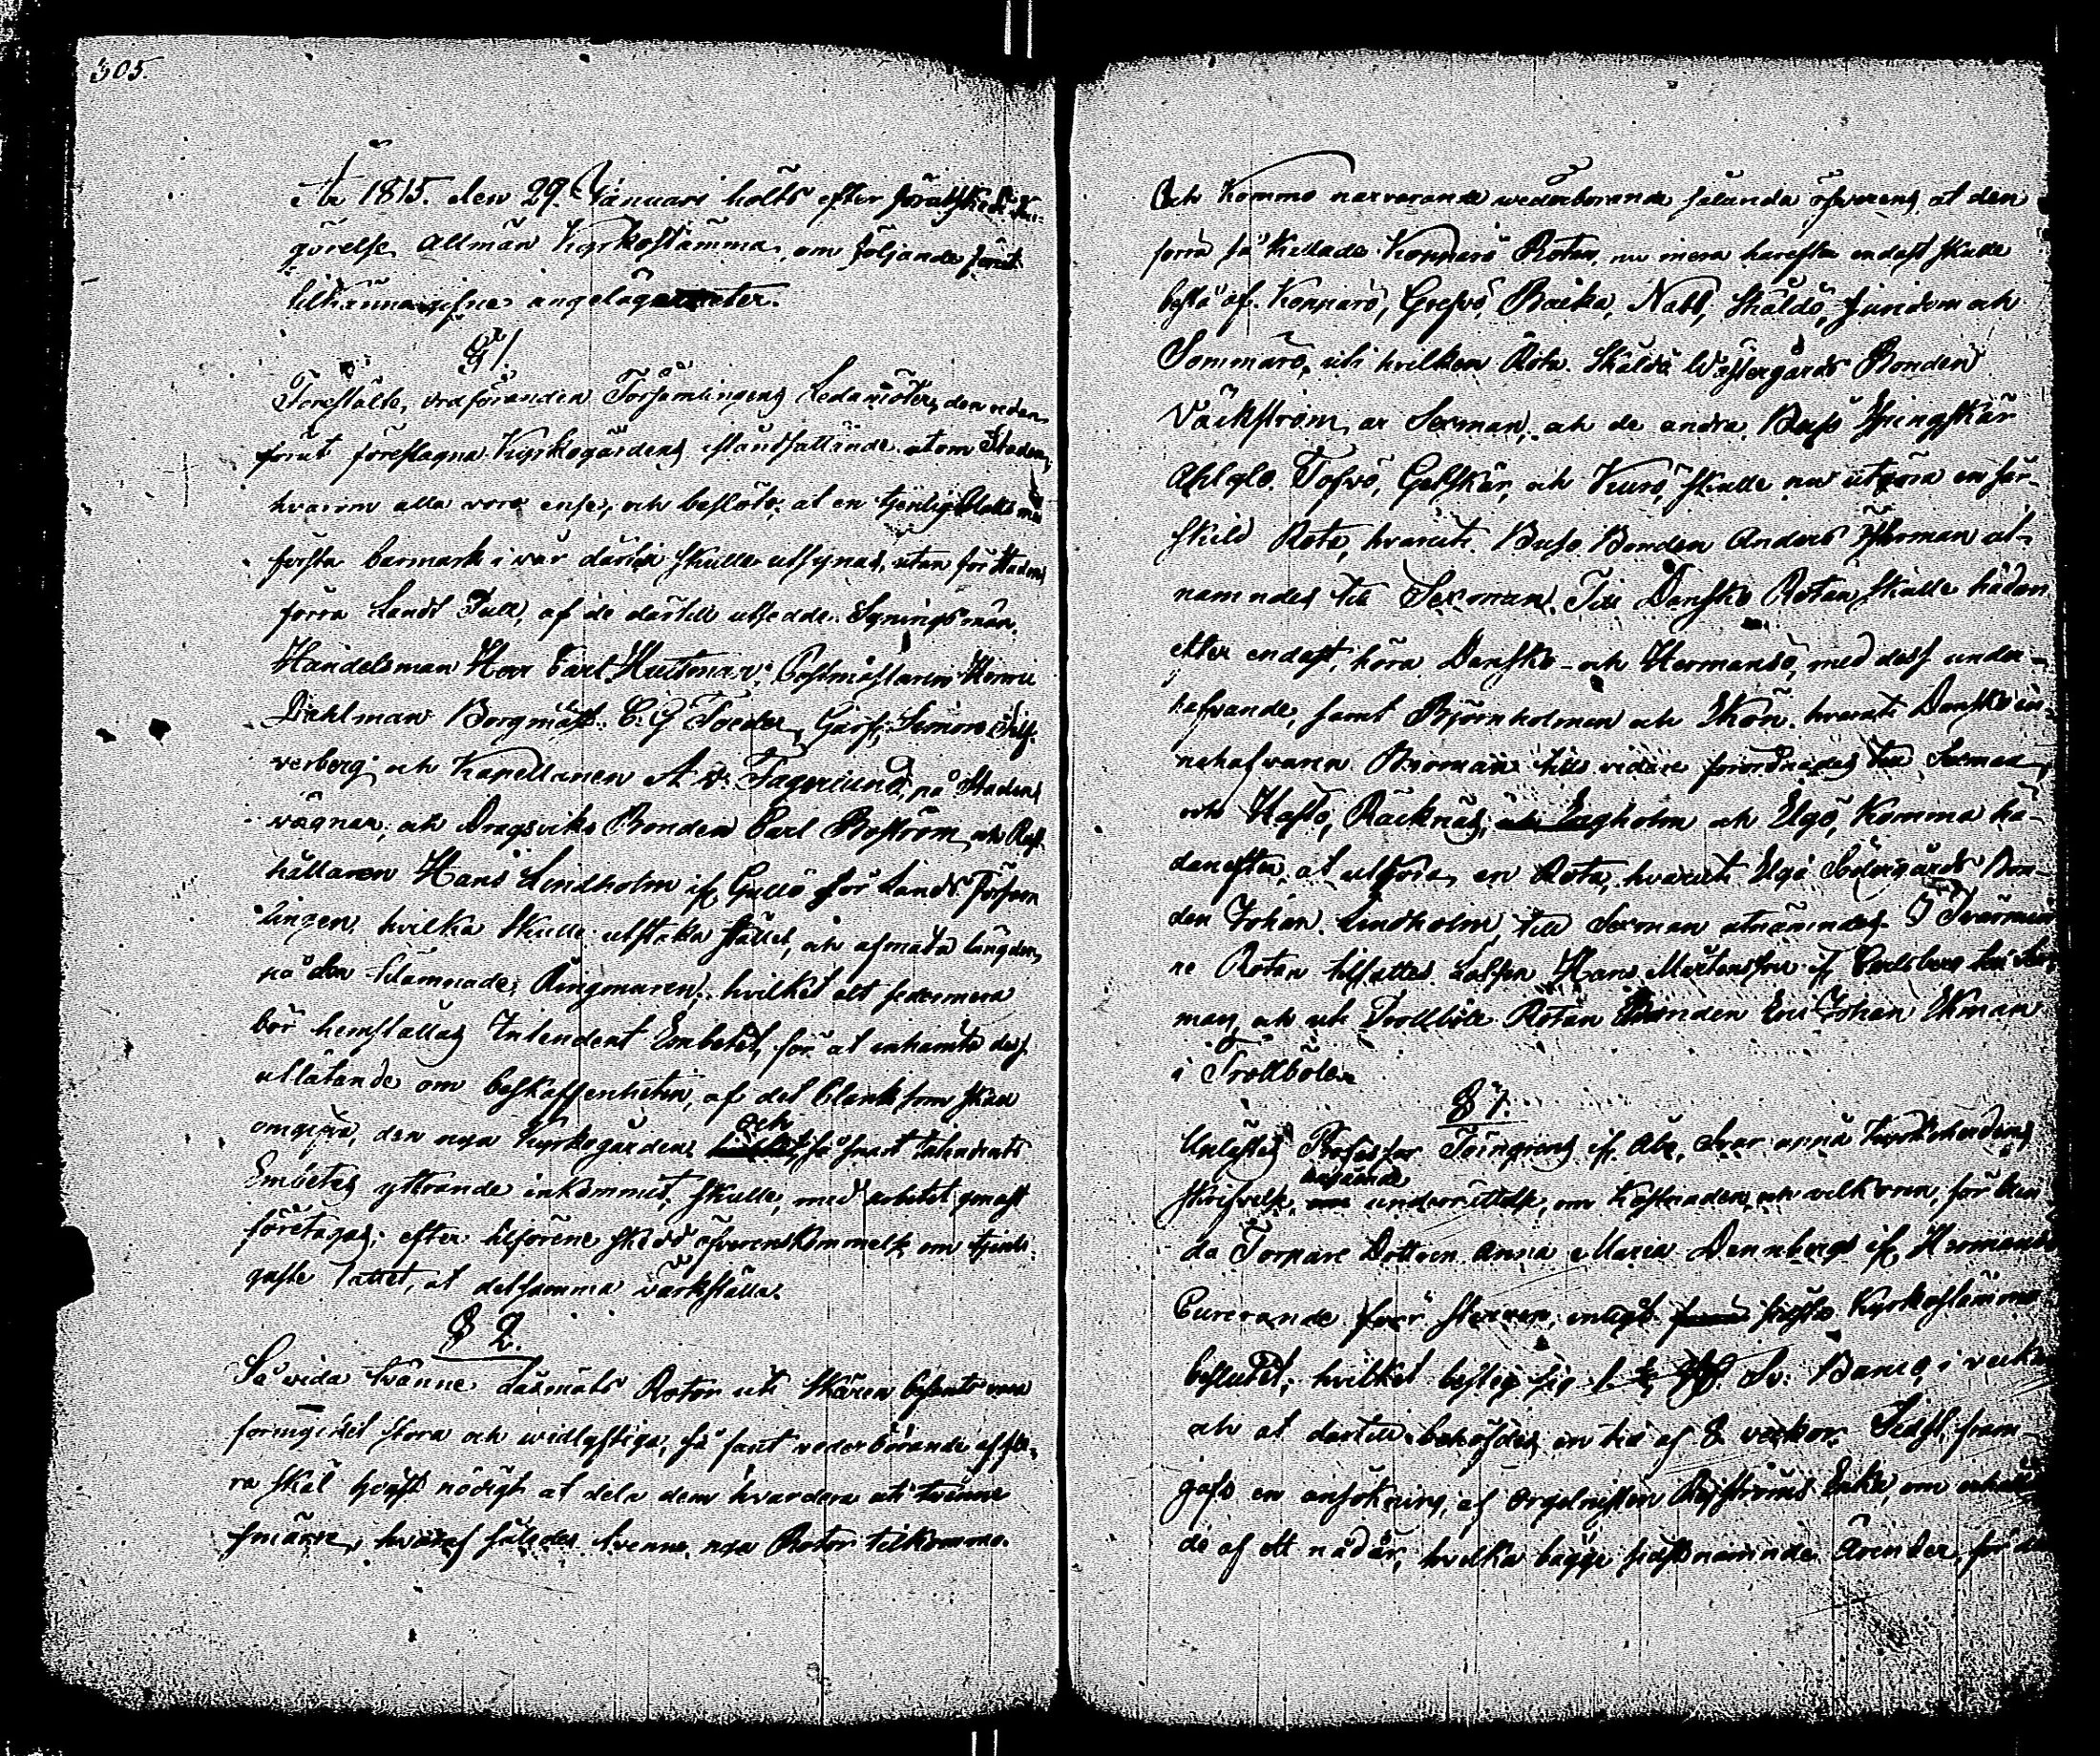 305.
År 1815. den 29. Januari hölts efter förutskedd kun-
görelse Allmän Kyrkostämma, om följande förut
tilkännagifne angelägenheter.
§ 1.
Förestälte, ordföranden Församlingens Ledamöter, den redan
förut föreslagna Kyrkogårdens iståndsättande utom Staden,
hvarom alla voro ense, och beslöts, at en tjenlig Plats med
första barmark i vår därtil skulle utsynas, utan för Stadens
förra Lands Tull, af de därtill utsedde Syningsmän,
Handelsman Herr Carl Hultman, Postmästaren Herr
Dahlman Borgmäst. C. G. Toeder, Garf. Simon Silf-
verberg och Kapellanen A. W. Fagerlund, på Stadens
vägnar, och Dragsviks Bonden Carl Boström och Rust-
hållaren Hans Lindholm if. Gullö för Lands Försam
lingen, hvilka skulle utstaka stället, och afmäta längden,
på den tilämnade Ringmuren, hvilket alt sedermera
bör hemställas Intendent Embetet, för at inhämta dess
utlåtande om beskaffenheten, af det Plank som skall
omgifva, den nya Kyrkogården, och så snart Intendents
Embetes yttrande inkommit, skulle, med arbetet genast
företagas, efter tilförene skedd öfverenskommelse om tjenli-
gaste sättet, at detsamma värkställa.
§ 2.
Så vida tvänne särmäts Rotor uti Skären befants vara
formycket stora och widlyftiga, så fant vederbörande af fle-
ra skäl högst nödigt at dela dem hvardera uti tvänne
smärre, hvaraf således tvenne nya Rotor tilkommo.
Och kommo narvarande wederborande sålunda öfverens, at den
förra så kallade Kopparö Rotan, nu mera härefter endast skulle
bestå af Kopparö, Grefsö, Backa, Nabb, Skåldö, Jundom och
Sommarö, uti hvilken Rota Skåldö Wästergårds Bonden
Väckström ar Sexman, och de andra, Busö Springskär
Ahlglo. Tofsö, Getskär, och Kurö, skulle nu utgöra en sär-
skild Rota, hvaruti Busö Bonden Anders Österman ut-
namndes till Sexman. Till Danskö Rotan skulle hädan
efter endast, höra Danskö- och Hermansö, med dess under-
hafvande, samt Björnholmen och Skön, hvaruti Danskö in-
nehafvaren Broman tills vidare förordnades till Sexman,
och Hastö, Räcknäs, Engholm och Elgö, komma hä-
danefter, at utgöra en Rota, hvaruti Elgö Södergårds Bon-
den Johan Lindholm, till Sexman utnämndes. I Tvärmin
ne Rotan tilsattes Lotsen Hans Mårtensson if. Carlsberg till Sex-
man, och uti Trollböle Rotan Bonden Eric Johan Ekman
i Trollböle.
§ 7.
Uplästes Professor Törngrens if. Åbo, Svar annå Kyrkoherdens
skrifvelse, angående underrättelse, om kostnaden och vilkoren, för blin
da Torpare Dottren Anna Maria Dannberg if. Hermansö
Curerande fvör starren, enligt sidsta Kyrkostämmo
beslutet; hvilket besteg sig Sv: Banco, i veckan
och at dertill behöfdes en tid af 8 veckor. Sidst, fram
gafs en ansökning, af Orgelnisten Reiströms Enka, om erhållan
de af ett nådår, hvilka bägge sidstnämnde Ärender, för de